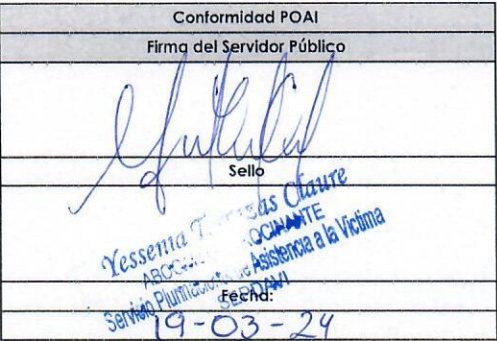 Conformidad POAI
Firma del Servidor Público
Sello
Yessenia Claure
ABOGADA PATROCINANTE
Servicio Plurinacional de Asistencia a la Víctima
SEPDAVI
Fecha:
19-03-24